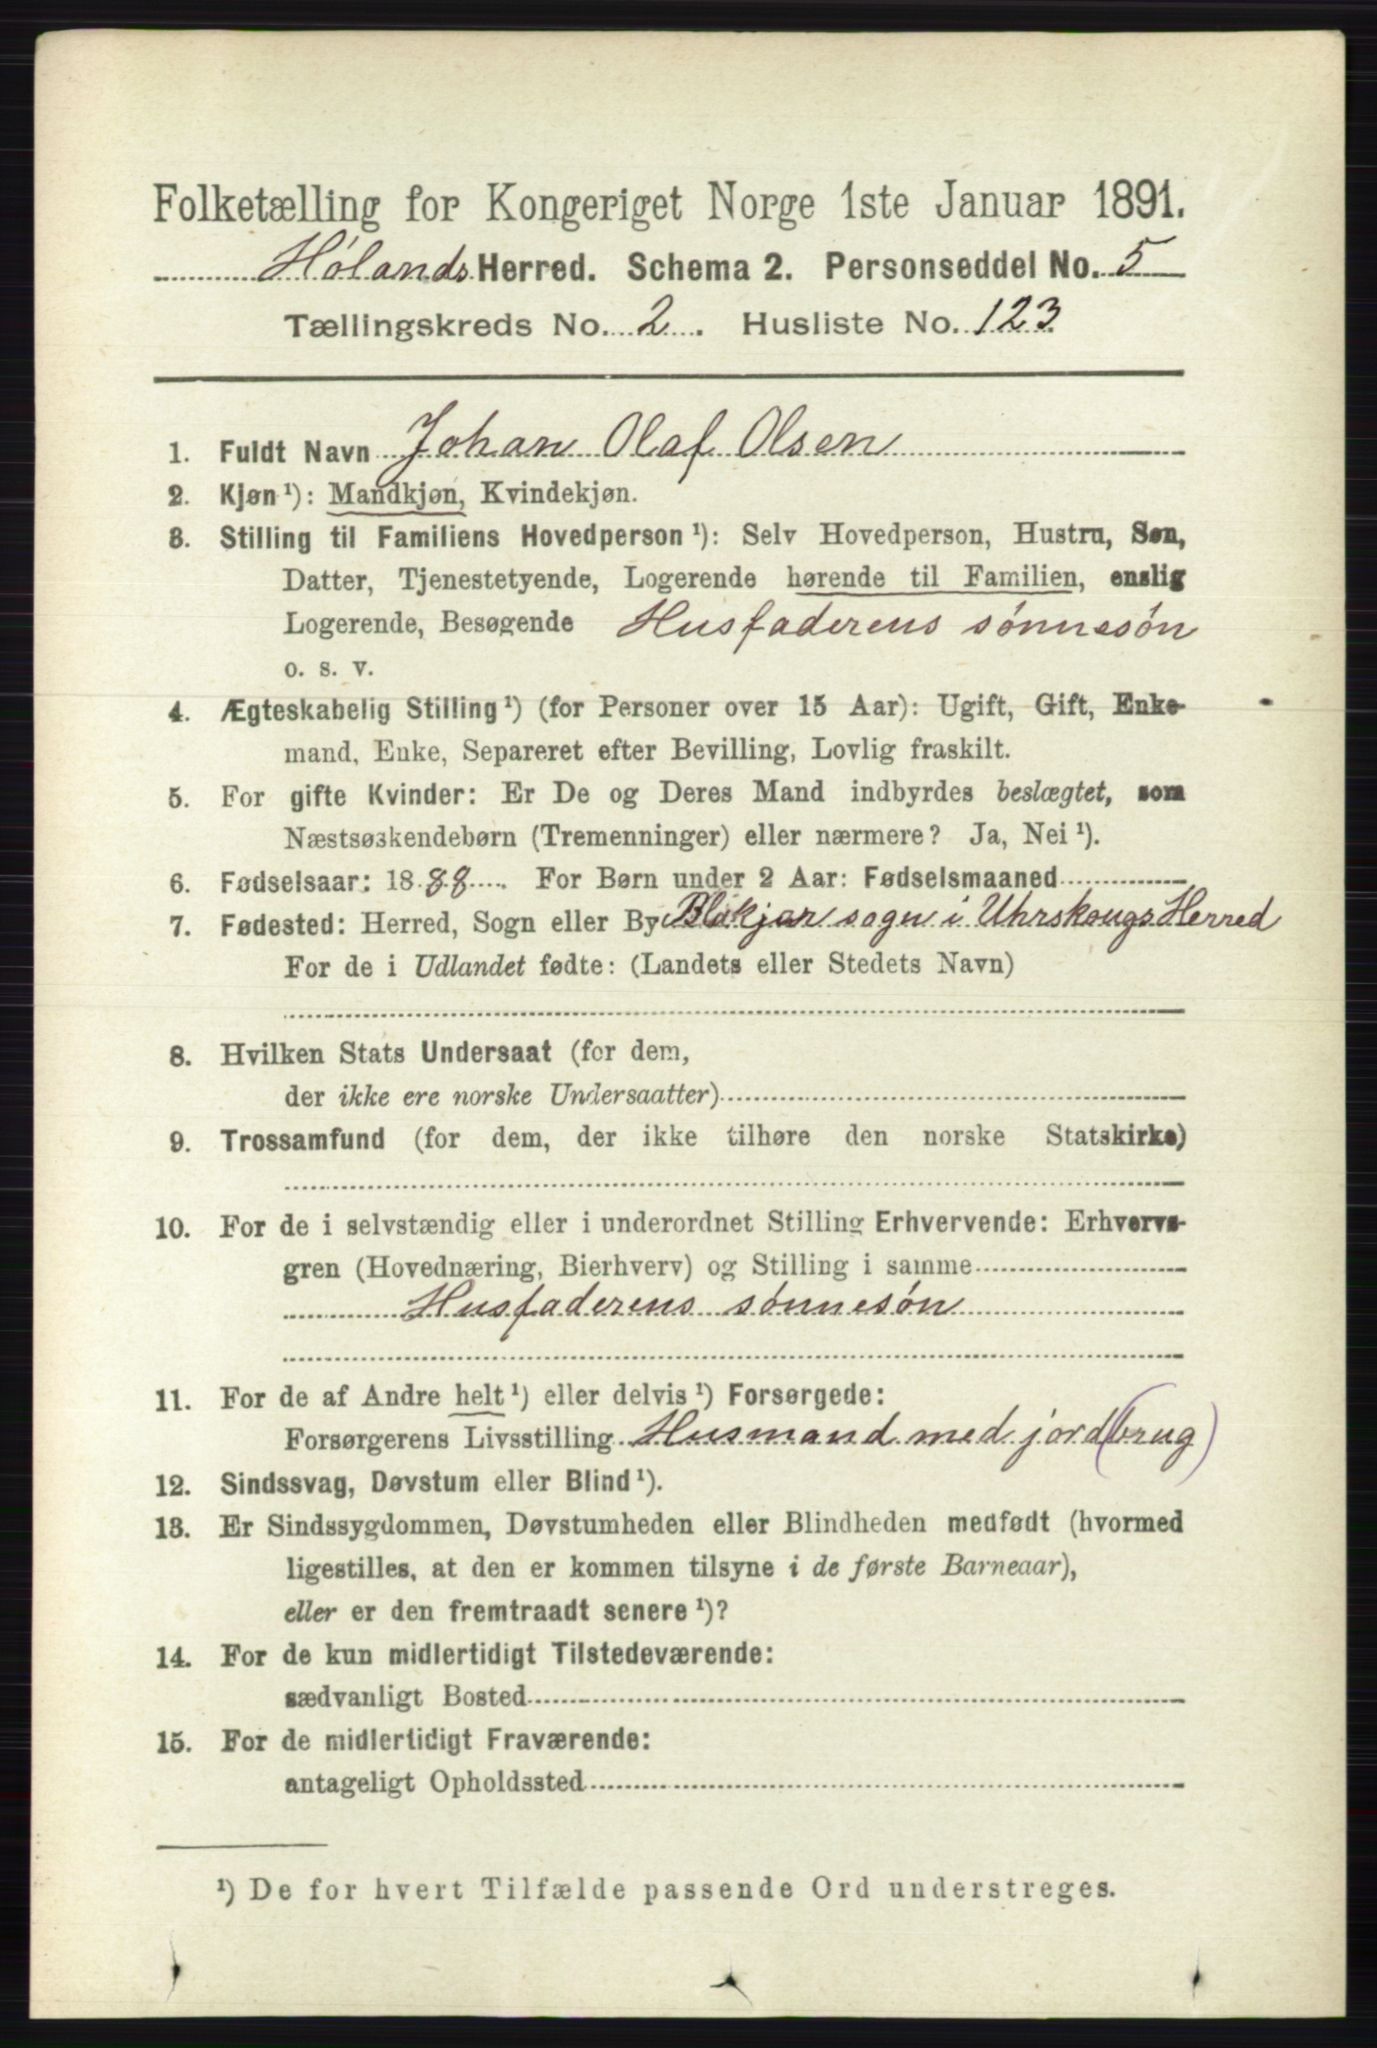 Folketælling for Kongeriget Norge 1ste Januar 1891.
Hølands Herred. Schema 2. Personseddel No. 5
Tællingskreds No. 2. Husliste No. 123
1. Fuldt Navn Johan Olaf Olsen
2. Kjøn¹): Mandkjøn, Kvindekjøn.
3. Stilling til Familiens Hovedperson¹): Selv Hovedperson, Hustru, Søn,
Datter, Tjenestetyende, Logerende hørende til Familien, enslig
Logerende, Besøgende Husfaderens sønnesøn
o. s. v.
4. Ægteskabelig Stilling¹) (for Personer over 15 Aar): Ugift, Gift, Enke-
mand, Enke, Separeret efter Bevilling, Lovlig fraskilt.
5. For gifte Kvinder: Er De og Deres Mand indbyrdes beslægtet, som
Næstsøskendebørn (Tremenninger) eller nærmere? Ja, Nei¹).
6. Fødselsaar: 1888. For Børn under 2 Aar: Fødselsmaaned
7. Fødested: Herred, Sogn eller By Blakjær sogn i Uhrskougs Herred
For de i Udlandet fødte: (Landets eller Stedets Navn)
8. Hvilken Stats Undersaat (for dem,
der ikke ere norske Undersaatter)
9. Trossamfund (for dem, der ikke tilhøre den norske Statskirke)
10. For de i selvstændig eller i underordnet Stilling Erhvervende: Erhvervs-
gren (Hovednæring, Bierhverv) og Stilling i samme
Husfaderens sønnesøn
11. For de af Andre helt¹) eller delvis¹) Forsørgede:
Forsørgerens Livsstilling Husmand med jord(brug)
12. Sindssvag, Døvstum eller Blind¹).
13. Er Sindssygdommen, Døvstumheden eller Blindheden medfødt (hvormed
ligestilles, at den er kommen tilsyne i de første Barneaar),
eller er den fremtraadt senere¹)?
14. For de kun midlertidigt Tilstedeværende:
sædvanligt Bosted
15. For de midlertidigt Fraværende:
antageligt Opholdssted
¹) De for hvert Tilfælde passende Ord understreges.